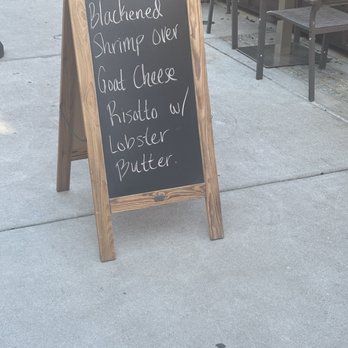 Blackened
Shrimp over
Goat Cheese
Risotto w/
Lobster
Butter.